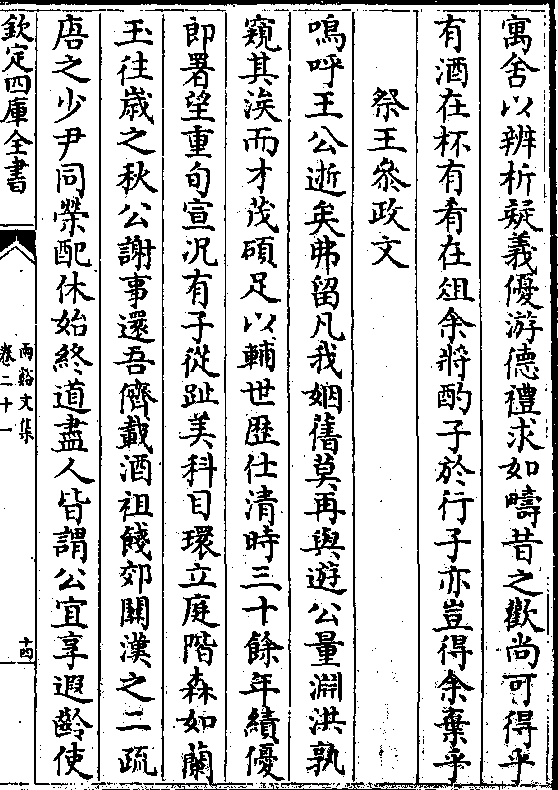 寓舍以辨析疑義優游德禮求如疇昔之歡尚可得乎
有酒在杯有肴在俎余將酌子於行子亦豈得余棄乎
祭王叅政文
嗚呼王公逝矣弗留凡我姻舊莫再與遊公量淵洪孰
窺其涘而才茂碩足以輔世歴仕清時三十餘年績優
郎署望重旬宣况有子從趾美科目環立庭階森如蘭
玉往歳之秋公謝事還吾儕載酒祖餞郊關漢之二疏
唐之少尹同榮配休始終道盡人皆謂公宜享遐齡使
欽定四庫全書
兩谿文集
卷二十一
十四